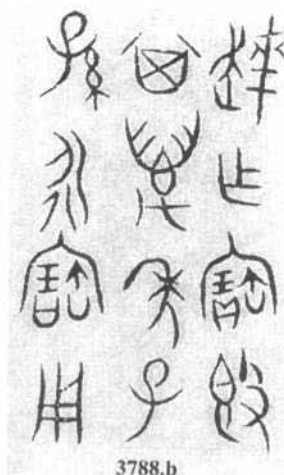 乍寶𣪘
其萬年子
孫永寶用
3788.b